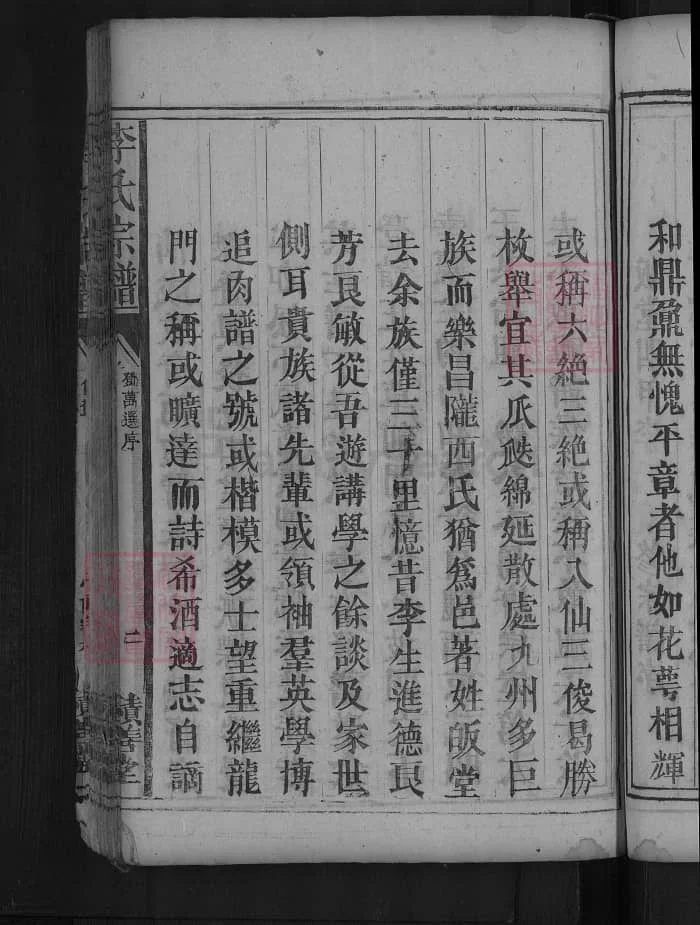 和鼎鼐無愧平章者他如花萼相輝
或稱六絶三絶或稱八仙三俊曷勝
枚舉宜其瓜瓞綿延散處九州多巨
族而樂昌隴西氏猶爲邑著姓皈堂
去余族僅三十里憶昔李生進德良
芳良敏從吾遊講學之餘談及家世
側耳貴族諸先輩或領袖羣英學博
追肉譜之號或楷模多士望重繼龍
門之稱或曠達而詩希酒適志自謫
李氏宗譜
萬選序
二
積善堂